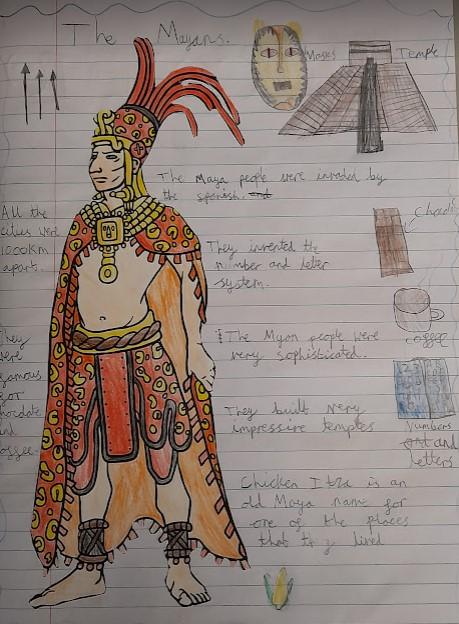 The Mayans.
Masks
Temple
The Maya people were invaded by
the spanish. and
All the
cities were
1000km
apart.
They invented the
number and letter
system.
The Myan people were
very sophisticated.
coffee
They
were
famous
for
and
They built very
impressive temples
Numbers
and and
letters
Chicken Itza is an
old Maya name for
one of the places
that they lived